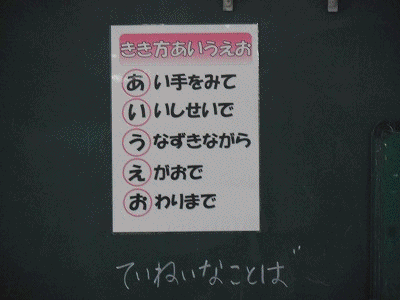 きき方あいうえお
あい手をみて
いいしせいで
うなずきながら
えがおで
おわりまで
ていねいなことば